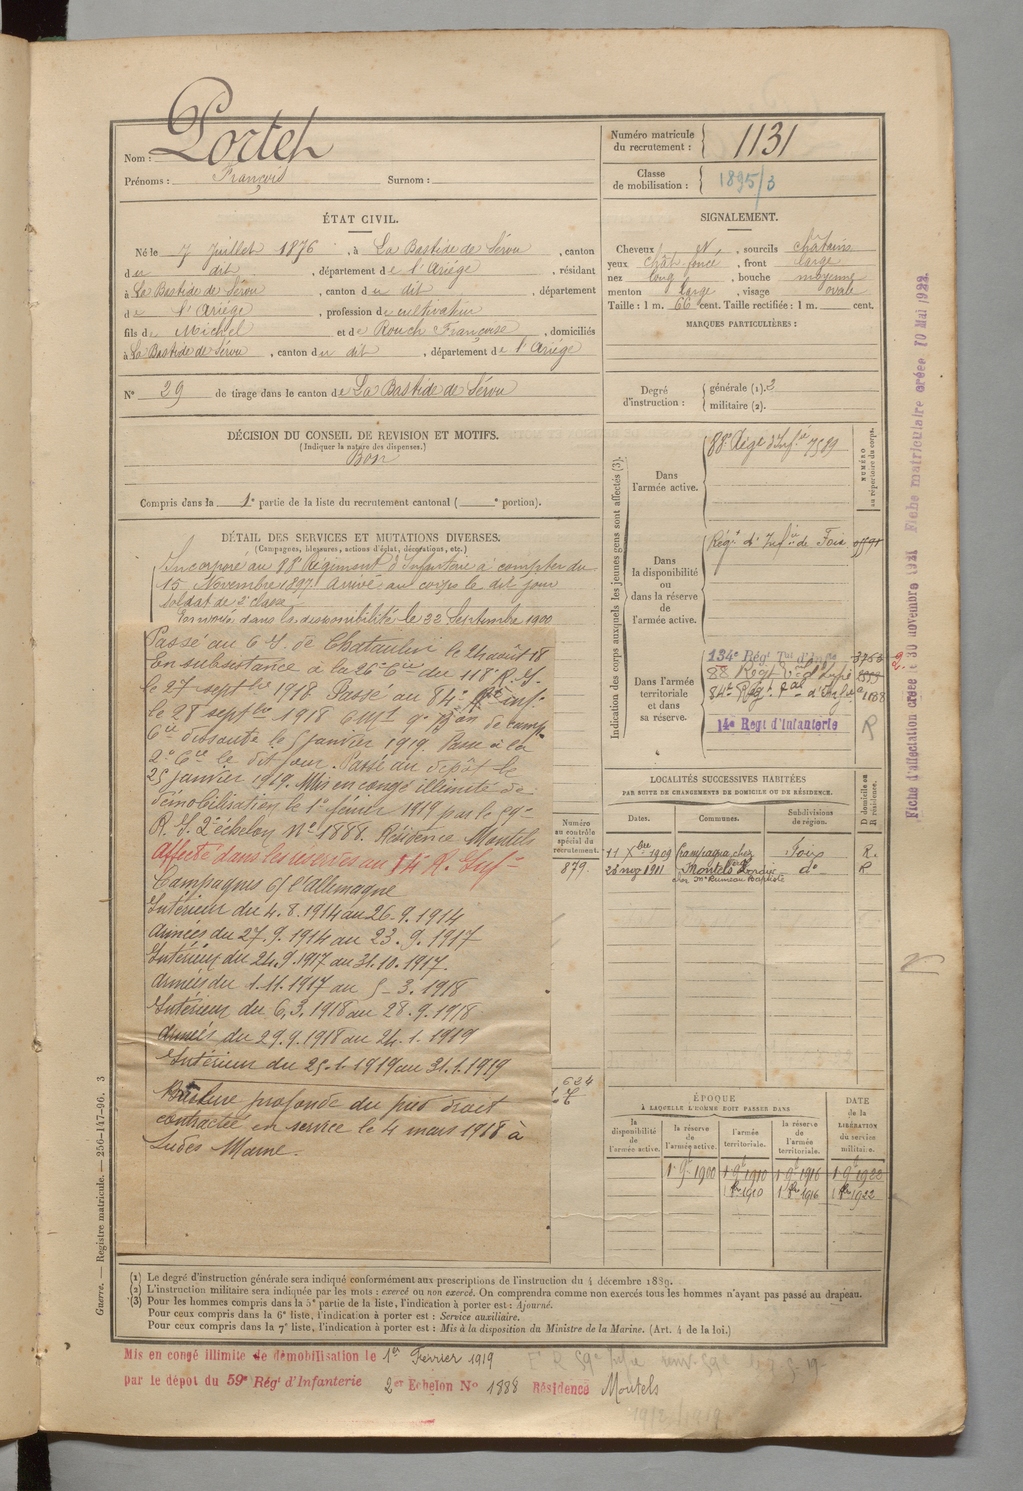 Nom : Porteh
Prénoms : François Surnom :
Numéro matricule du recrutement : 1131
Classe de mobilisation : 1895/3
ÉTAT CIVIL.
Né le 7 Juillet 1876, à La Bastide de Sérou, canton
du dit, département de l'Ariège, résidant
à La Bastide de Sérou, canton du dit, département
de l'Ariège, profession de cultivateur
fils de Michel et de Rouch Françoise, domiciliés
à La Bastide de Sérou, canton du dit, département de l'Ariège
N° 29 de tirage dans le canton de La Bastide de Sérou
SIGNALEMENT.
Cheveux N, sourcils châtain
yeux chât foncé, front large
nez long, bouche moyenne
menton large, visage ovale
Taille : 1 m. 66 cent. Taille rectifiée : 1 m. cent.
MARQUES PARTICULIÈRES :
DÉCISION DU CONSEIL DE REVISION ET MOTIFS.
(Indiquer la nature des dispenses.)
Bon
Compris dans la 1e partie de la liste du recrutement cantonal ( e portion).
Degré d'instruction : générale (1). 3
militaire (2).
DÉTAIL DES SERVICES ET MUTATIONS DIVERSES.
(Campagnes, blessures, actions d'éclat, décorations, etc.)
Incorporé au 88e Régiment d'Infanterie à compter du
15 Novembre 1897. Arrivé au corps le dit jour
Soldat de 2e classe
Envoyé dans la disponibilité le 22 Septembre 1900
Passé au 6 . de Chataulin le 24 août 18
En subsistance à la 26e Cie du 118e R.I.
le 27 septbre 1918 Passé au 84e inf.
le 28 septbre 1918 de camp.
Cie dissoute le 5 janvier 1919. Passe à la
2e Cie le dit jour. Passé au dépôt le
25 janvier 1919. Mis en congé illimité de
démobilisation le 1er février 1919 par le 59e
R.I. 2e échelon No 1888. Résidence Montels
Affecté dans les réserves au 14 R. Infie
Campagnes c/ l'Allemagne
Intérieur du 4.8.1914 au 26.9.1914
Armées du 27.9.1914 au 23.9.1917
Intérieur du 24.9.1917 au 31.10.1917.
Armées du 1.11.1917 au 5-3.1918
Intérieur du 6.3.1918 au 28.9.1918
Armées du 29.9.1918 au 24.1.1919
Intérieur du 25.1.1919 au 31.1.1919
profonde du pied droit
contractée en service le 4 mars 1918 à
Ludes Marne.
Numéro au contrôle spécial du recrutement.
879.
634
Indication des corps auxquels les jeunes gens sont affectés (3).
NUMÉRO au répertoire du corps.
Dans l'armée active.
88e Régt d'Infie 7589
Dans la disponibilité ou dans la réserve de l'armée active.
Régt d'Infie de Foix
Dans l'armée territoriale et dans sa réserve.
134e Régt Tal d'Infie 3763
88 Régt
84e Régt Tal d'Infie 1138
14e Regt d'Infanterie R
LOCALITÉS SUCCESSIVES HABITÉES
PAR SUITE DE CHANGEMENTS DE DOMICILE OU DE RÉSIDENCE.
D domicile ou R résidence.
Dates. Communes. Subdivisions de région.
11 Xbre 1909 Campagna, chez Foix R.
28 1911 Montels do R
chez Mr Rumeau Baptiste
ÉPOQUE
À LAQUELLE L'HOMME DOIT PASSER DANS
DATE de la LIBÉRATION du service militaire.
la disponibilité de l'armée active.
la réserve de l'armée active.
l'armée territoriale.
la réserve de l'armée territoriale.
1 9e 1900 1 9e 1910 1 9e 1916 1 9e 1922
1910 1916 1922
(1) Le degré d'instruction générale sera indiqué conformément aux prescriptions de l'instruction du 4 décembre 1889.
(2) L'instruction militaire sera indiquée par les mots : exercé ou non exercé. On comprendra comme non exercés tous les hommes n'ayant pas passé au drapeau.
(3) Pour les hommes compris dans la 5e partie de la liste, l'indication à porter est : Ajourné.
Pour ceux compris dans la 6e liste, l'indication à porter est : Service auxiliaire.
Pour ceux compris dans la 7e liste, l'indication à porter est : Mis à la disposition du Ministre de la Marine. (Art. 4 de la loi.)
Mis en congé illimité de démobilisation le 1er Février 1919
par le dépôt du 59e Régt d'Infanterie 2er Echelon No 1888 Résidence Montels
Guerre. — Registre matricule. — 256-147-96. 3
Fiche d'affectation créée le 30 novembre 1921 Fiche matriculaire créée 10 Mai 1922.